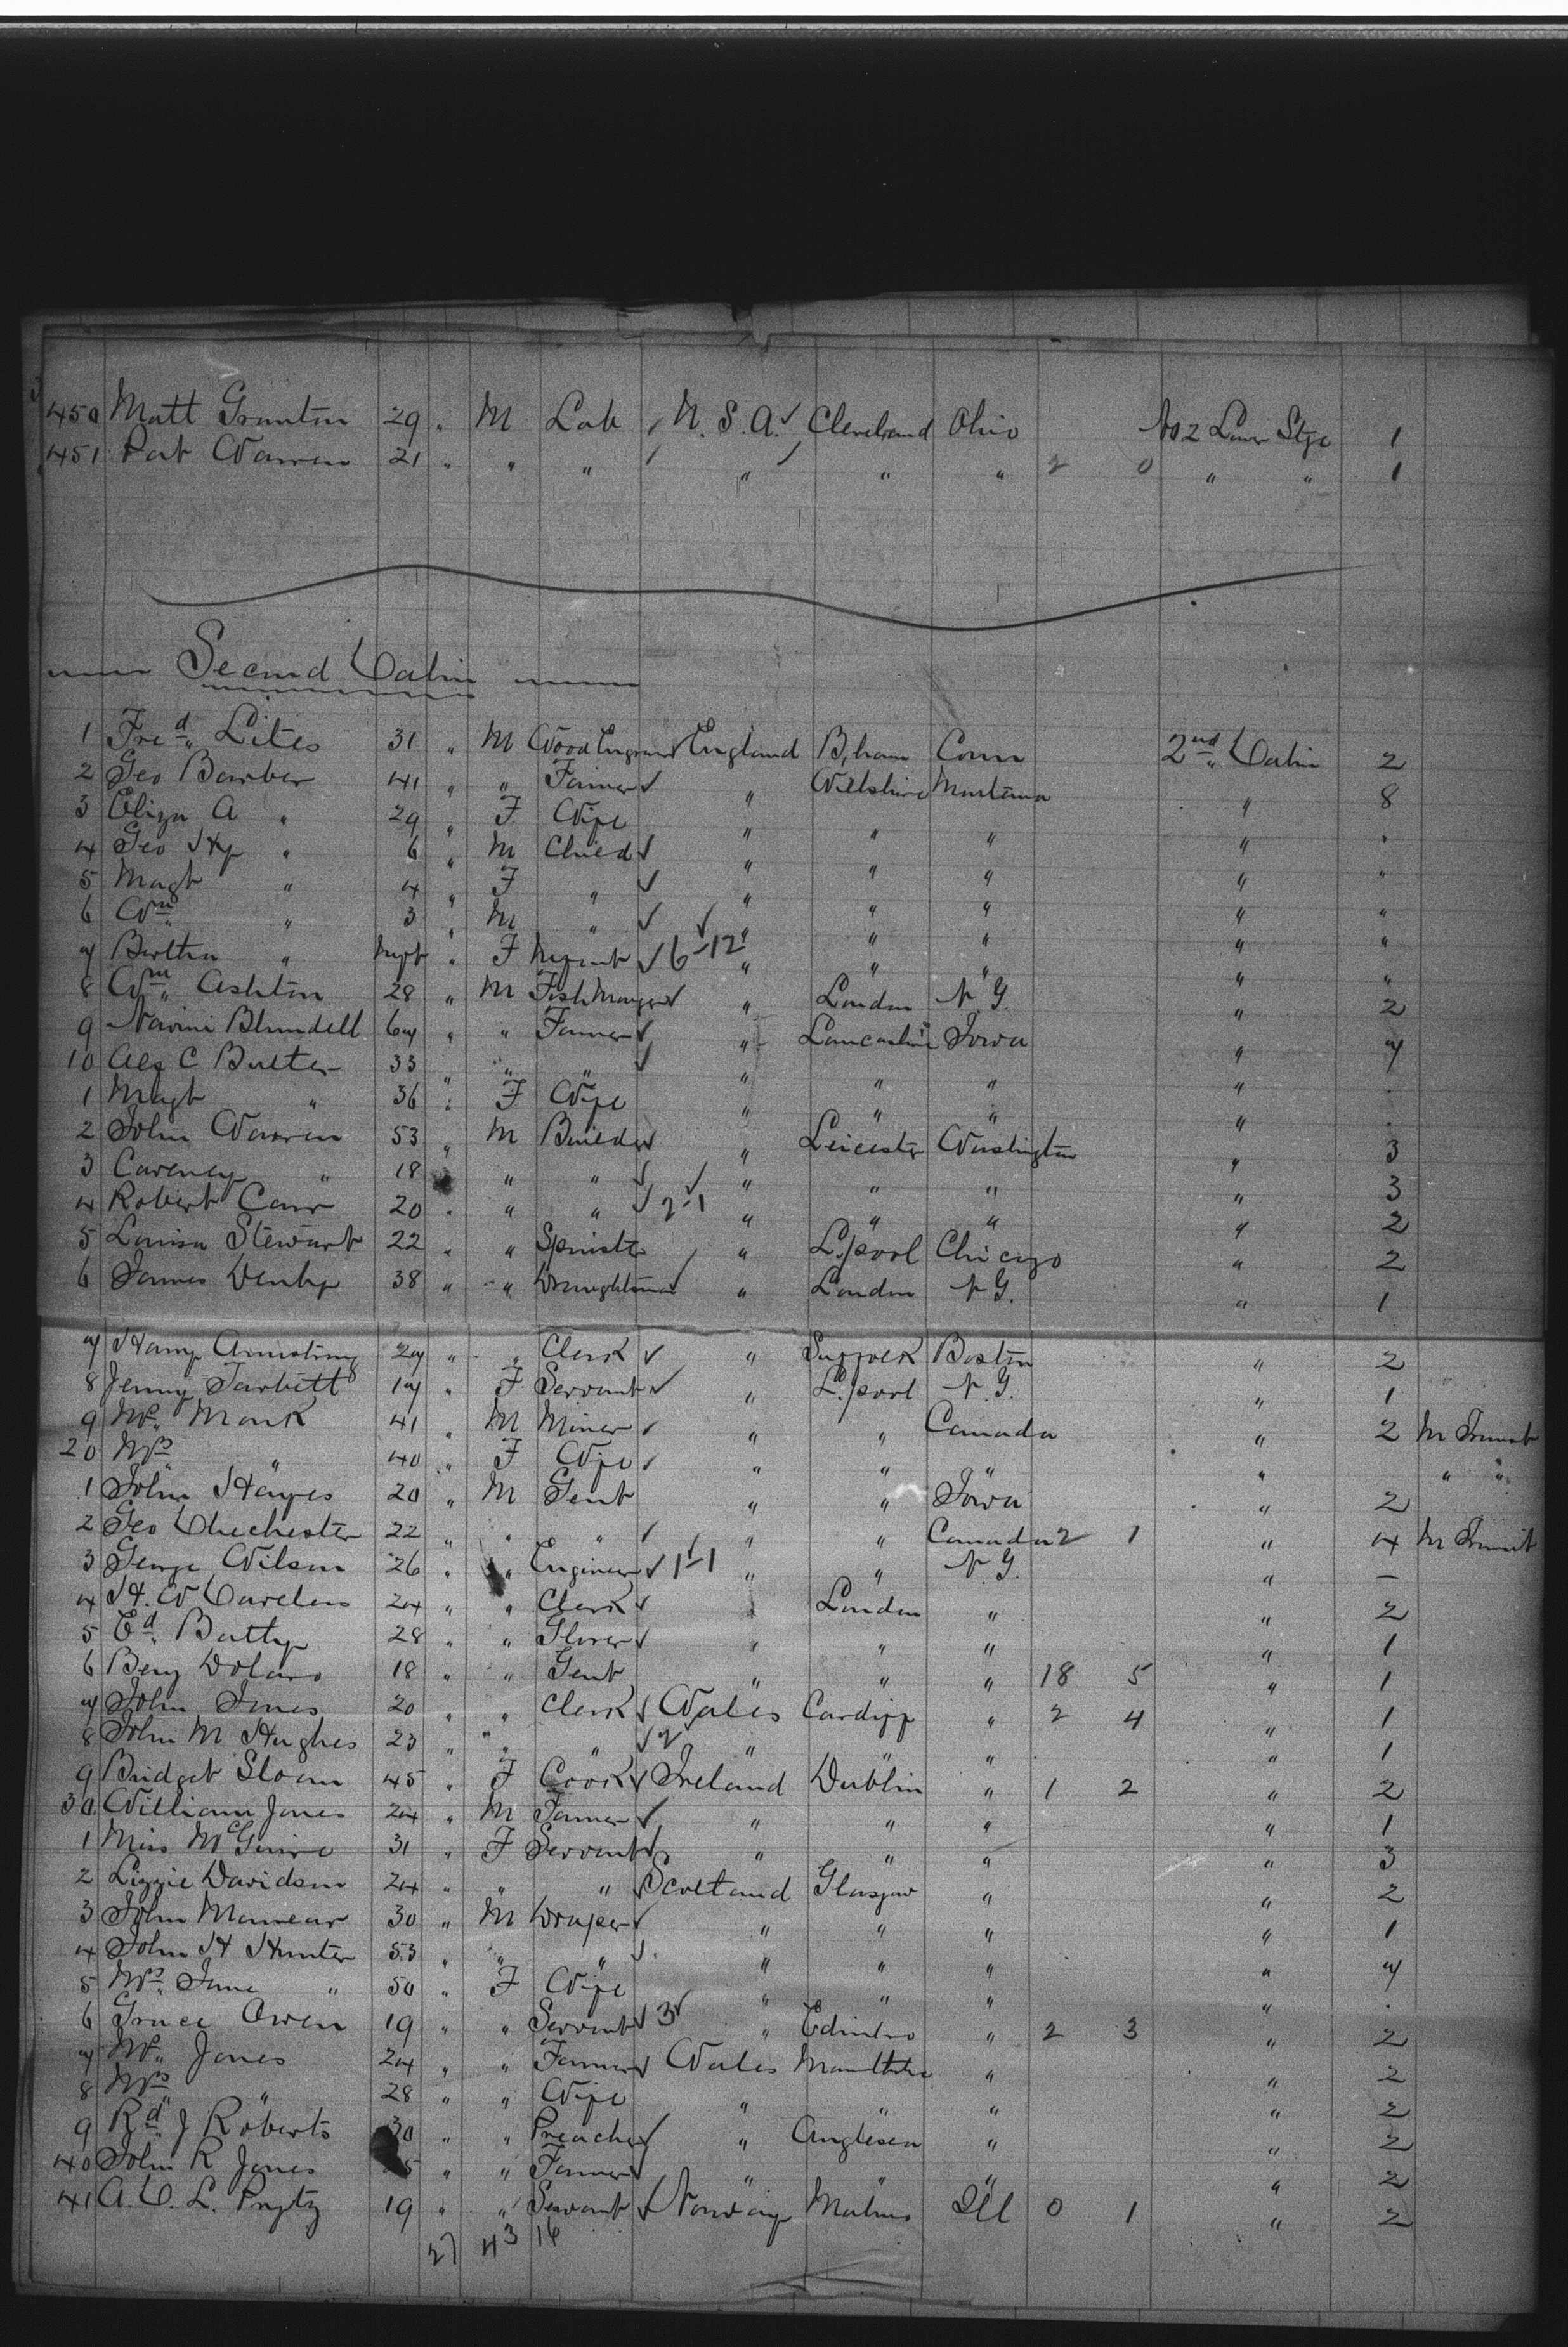 450 Matt Granton 29 " M Lab / U.S.A. ✓ Cleveland Ohio No 2 Lower Stge 1
451 Pat Warren 21 " " " / " / " " 2 0 " " 1
Second Cabin
1 Fred Lites 31 " M Wood Engraver ✓ England B,ham Conn 2nd Cabin 2
2 Geo Barber 41 " " Farmer ✓ " Wiltshire Montana " 8
3 Eliza A " 29 " F Wife " " " " "
4 Geo Hy " 6 " M Child ✓ " " " " "
5 Magt " 4 " F " ✓ " " " " "
6 Wm " 3 " M " ✓ ✓ " " " " "
7 Bertha " Inft " F Infant ✓ 6-12 " " " " "
8 Wm Ashton 28 " M Fish Monger ✓ " London N.Y. " 2
9 Blundell 67 " " Farmer ✓ " Lancashire Iowa " 7
10 Alex C Butter 33 " " " ✓ " " " " .
1 Magt " 36 " F Wife " " " " .
2 John Warren 53 " M Builder ✓ " Leicester Washington " 3
3 " 18 " " " ✓ ✓ " " " " 3
4 Robert Carr 20 " " " ✓ 2-1 " " " " 2
5 Louisa Stewart 22 " " Spinster / " L.pool Chicago " 2
6 James Denby 38 " " Draughtsman ✓ " London N.Y. " 1
7 Harry Armstrong 27 " " Clerk ✓ " Suffolk Boston " 2
8 Jenny Tarbitt 17 " F Servant ✓ " L.pool N.Y. " 1
9 Mr. Monk 41 " M Miner / " " Canada " 2 In Transit
20 Mrs " 40 " F Wife / " " " " " "
1 John Hayes 20 " M Gent " " Iowa " 2
2 Geo Chichester 22 " " " / " " Canada 2 1 " 4 In Transit
3 George Wilson 26 " " Engineer ✓ 1-1 " " N.Y. " —
4 H. W 24 " " Clerk ✓ " London " " 2
5 Ed. Batty 28 " " Glover ✓ " " " " 1
6 Benj Dolaro 18 " " Gent " " " 18 5 " 1
7 John Jones 20 " " Clerk ✓ Wales Cardiff " 2 4 " 1
8 John M Hughes 23 " " " ✓ 2 ✓ " " " " 1
9 Bridget Sloan 45 " F Cook ✓ Ireland Dublin " 1 2 " 2
30 William Jones 24 " M Farmer ✓ " " " " 1
1 Miss McGuire 31 " F Servant ✓ " " " " 3
2 Lizzie Davidson 24 " " " ✓ Scotland Glasgow " " 2
3 John 30 " M Draper ✓ " " " " 1
4 John H Hunter 53 " " " ✓ " " " " 7
5 Mrs Jane " 50 " F Wife " " " " .
6 Grace Owen 19 " " Servant ✓ 3 ✓ " Edinbro " 2 3 " 2
7 Mr. Jones 24 " " Farmer ✓ Wales " " 2
8 Mrs " 28 " " Wife " " " " 2
9 Rd J Roberts 30 " " Preacher ✓ " Anglesea " " 2
40 John R Jones " " Farmer ✓ " " " " 2
41 A. C. L. Prytz 19 " " Servant ✓ Norway Malmo Ill 0 1 " 2
27 43 16